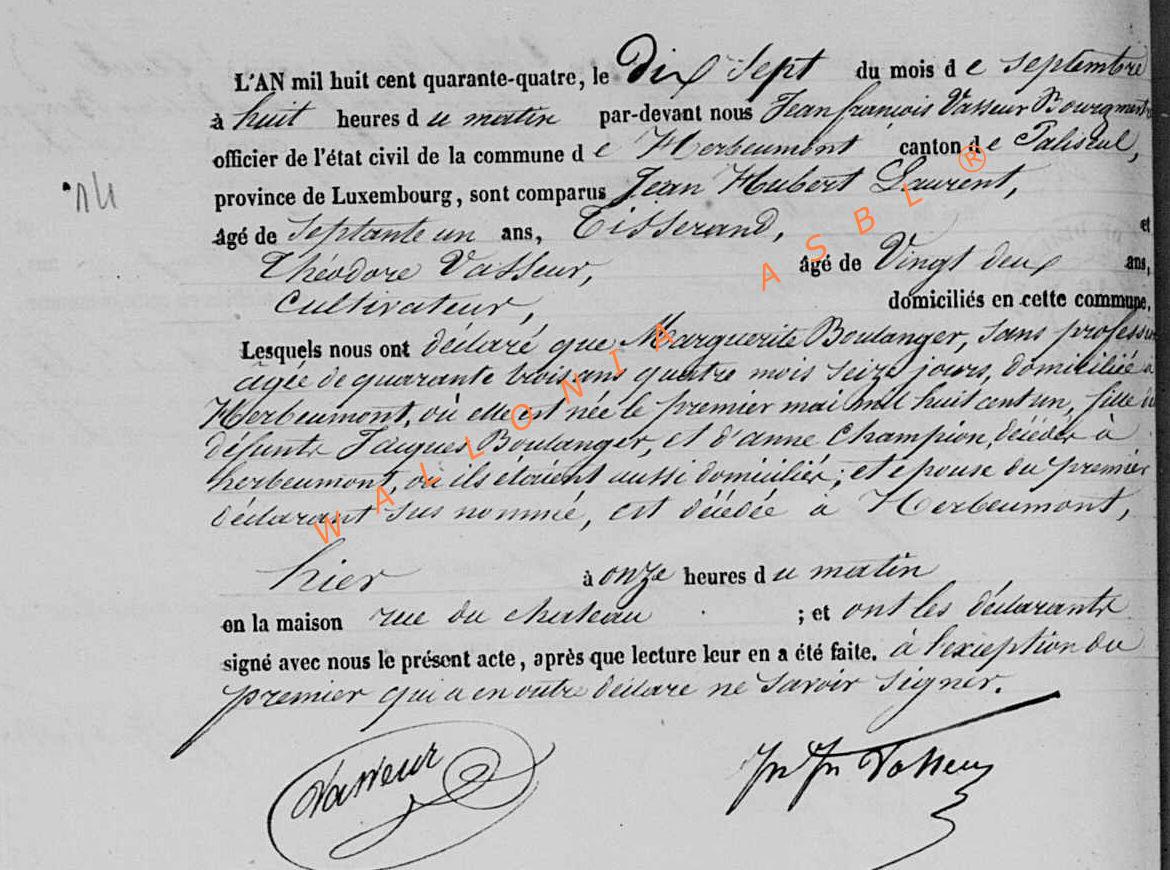 L'AN mil huit cent quarante-quatre, le dix sept du mois de septembre
à huit heures du matin par-devant nous Jean françois Vasseur Bourgmestre
officier de l'état civil de la commune de Herbeumont canton de Paliseul,
province de Luxembourg, sont comparus Jean Hubert Laurent,
âgé de septante un ans, Tisserand, et
Théodore Vasseur, âgé de Vingt deux ans,
Cultivateur, domiciliés en cette commune.
Lesquels nous ont déclaré que Marguerite Boulanger, sans profession
âgée de quarante trois ans quatre mois seize jours, domiciliée à
Herbeumont, où elle est née le premier mai mil huit cent un, fille de
défunts Jacques Boulanger, et d'anne Champion, décédés à
herbeumont, où ils étaient aussi domiciliés; et épouse du premier
déclarant sus nommé, est décédée à Herbeumont,
hier à onze heures du matin
en la maison rue du chateau ; et ont les déclarants
signé avec nous le présent acte, après que lecture leur en a été faite. à l'exception du
premier qui a en outre déclaré ne savoir signer.
Vasseur Jn Fn Vasseur
14
WALLONIA ASBL ®